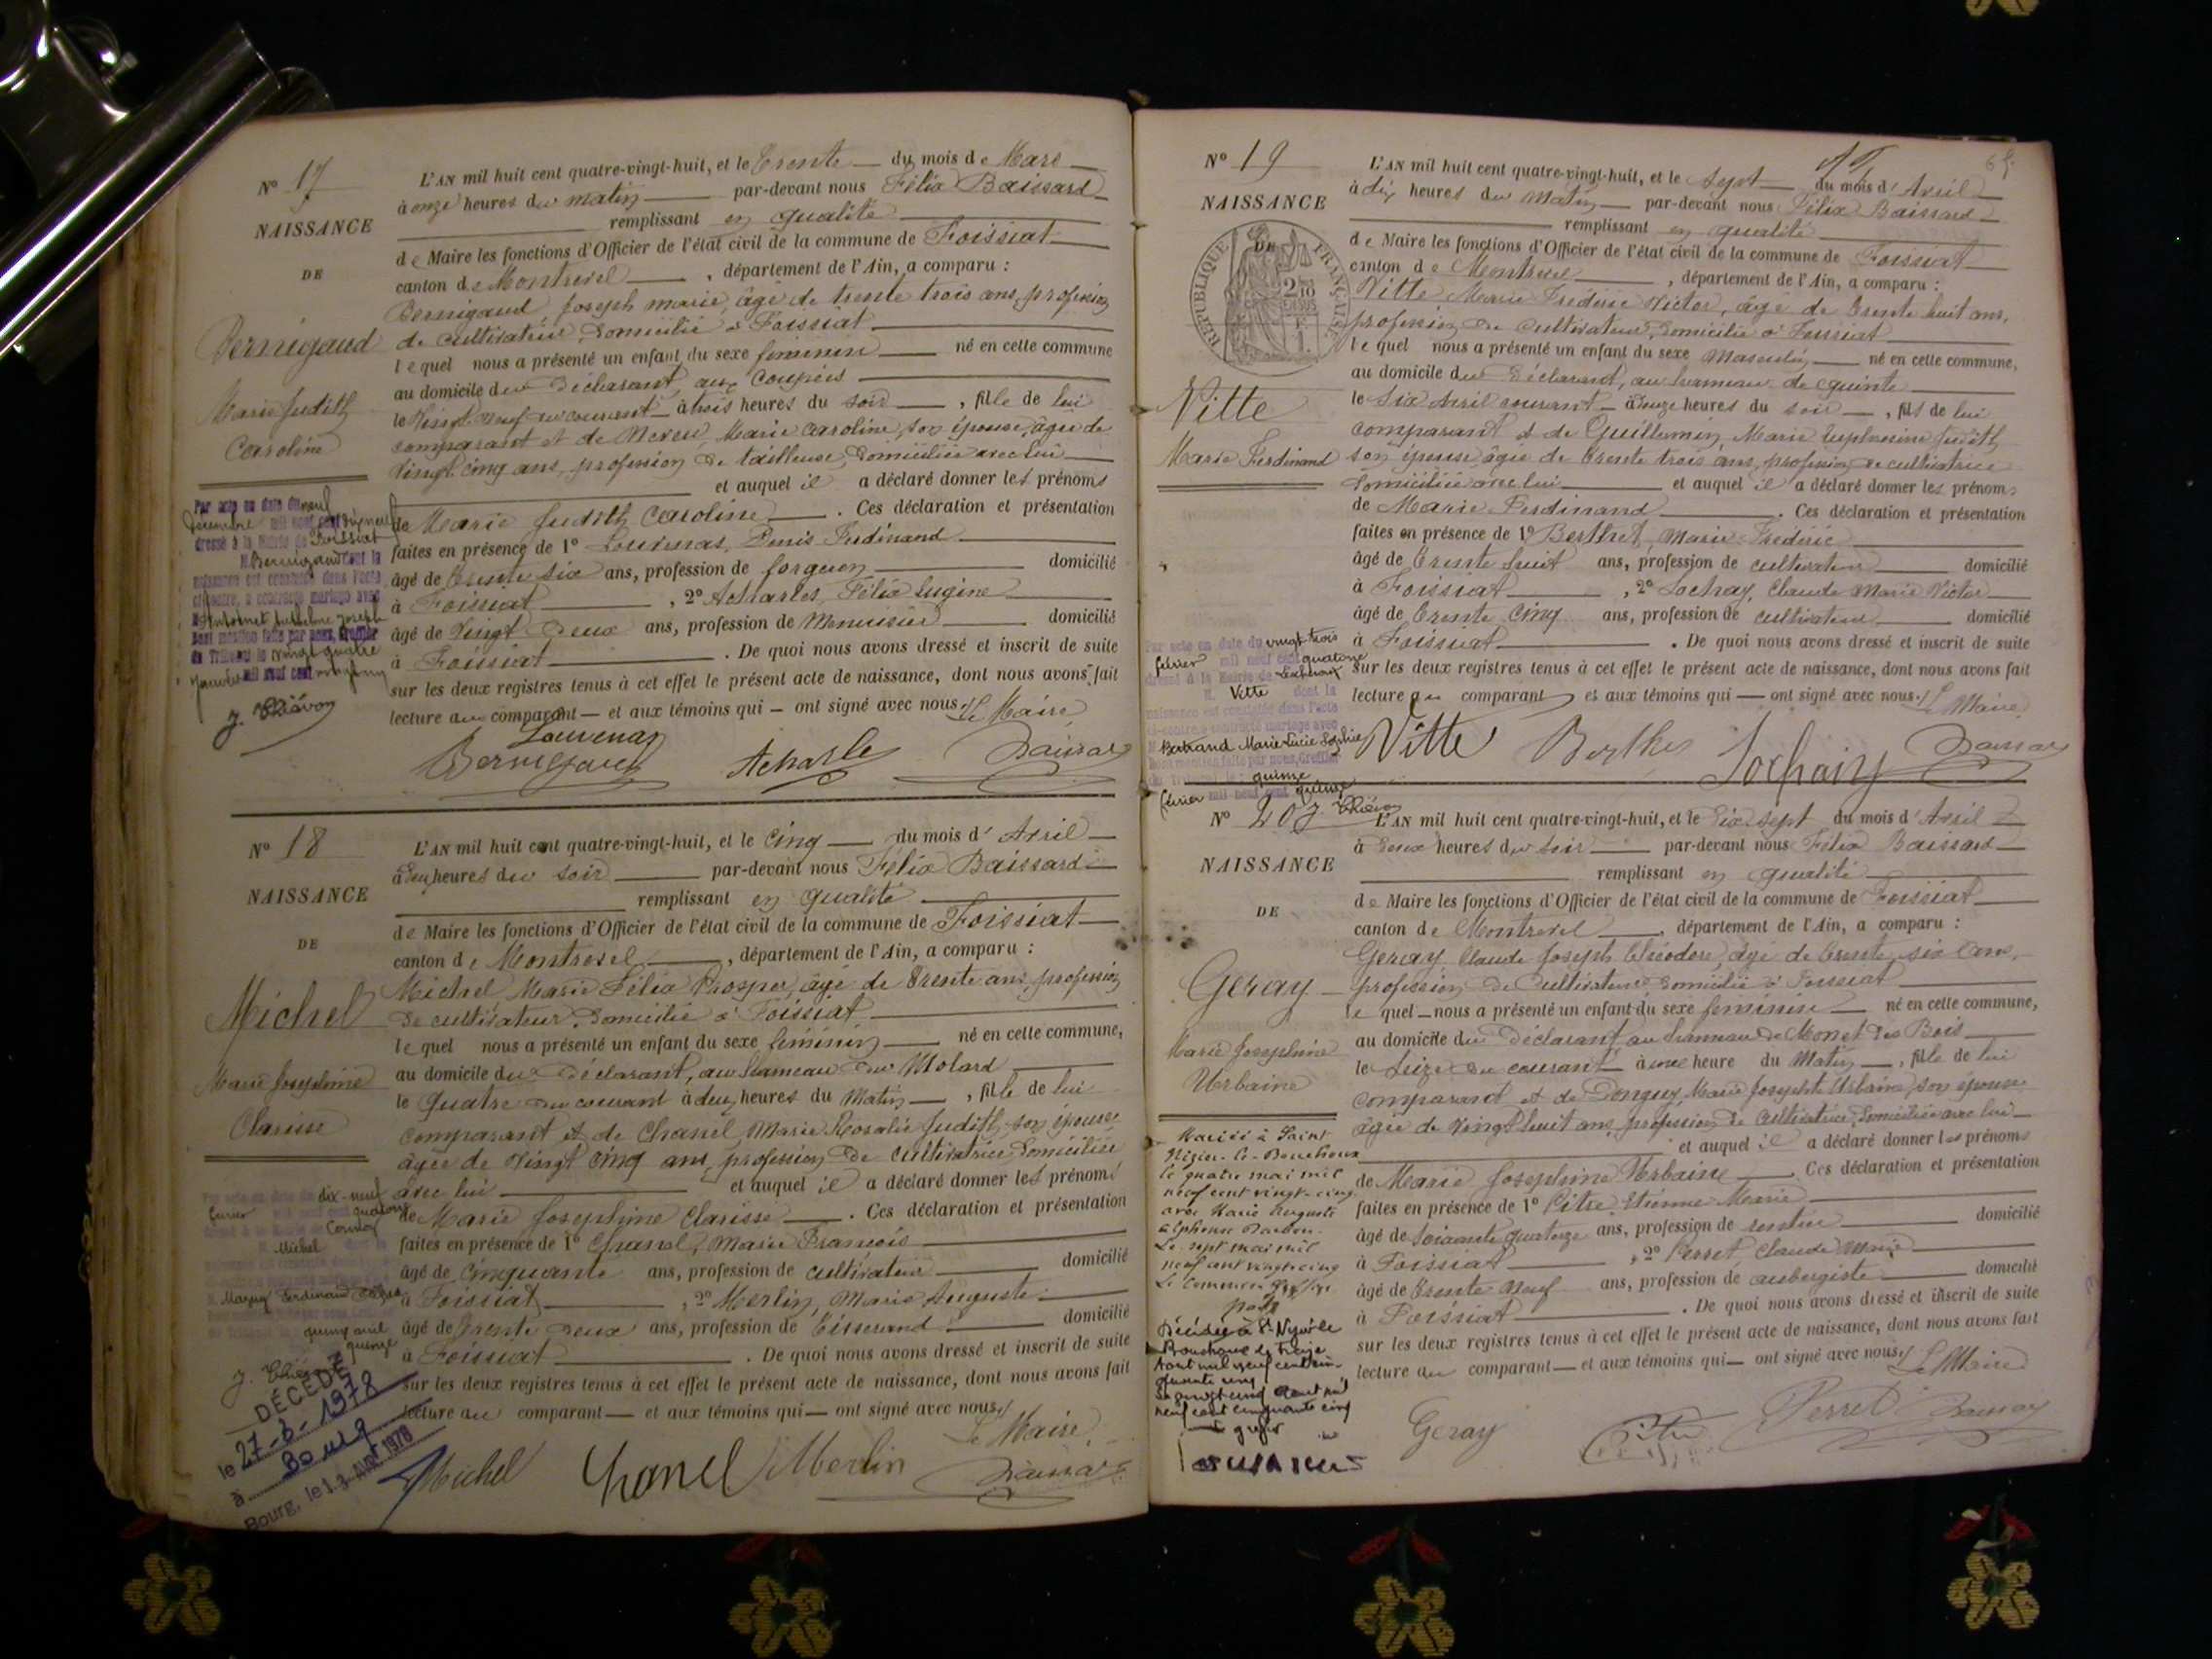 N° 17
NAISSANCE
DE
Bernigaud
Marie Judith
Caroline
L'AN mil huit cent quatre-vingt-huit, et le Trente du mois de Mars
à onze heures du matin par-devant nous Félix Baissard
remplissant en qualité
de Maire les fonctions d'Officier de l'état civil de la commune de Foissiat
canton de Montrevel, département de l'Ain, a comparu :
Bernigaud Joseph marie, âgé de trente trois ans, profession
de cultivateur, domicilié à Foissiat
lequel nous a présenté un enfant du sexe féminin né en cette commune
au domicile du Déclarant, aux Coupées
le Vingt neuf du courant à trois heures du soir, fille de lui
comparant et de Neveu, Marie Caroline, son épouse, âgée de
vingt cinq ans, profession de tailleuse, domiciliée avec lui
et auquel il a déclaré donner les prénoms
de Marie Judith Caroline. Ces déclaration et présentation
faites en présence de 1° Louvenas, Denis Ferdinand
âgé de Trente six ans, profession de forgeron domicilié
à Foissiat, 2° Acharles, Félix Eugène
âgé de Vingt Deux ans, profession de Menuisier domicilié
à Foissiat. De quoi nous avons dressé et inscrit de suite
sur les deux registres tenus à cet effet le présent acte de naissance, dont nous avons fait
lecture au comparant et aux témoins qui ont signé avec nous. Le Maire
Par acte en date du neuf
décembre mil neuf cent dix neuf
dressé à la Mairie de Foissiat
M. Bernigaud dont la
naissance est constatée dans l'acte
ci-contre, a contracté mariage avec
Joseph
Dont mention faite par nous, Greffier
du Tribunal le vingt quatre
janvier mil neuf cent vingt
J. Thiévon
Louvenas
Bernigaud Acharle Baissard
N° 18
NAISSANCE
DE
Michel
Marie Joséphine
Clarisse
L'AN mil huit cent quatre-vingt-huit, et le Cinq du mois d'Avril
à deux heures du soir par-devant nous Félix Baissard
remplissant en qualité
de Maire les fonctions d'Officier de l'état civil de la commune de Foissiat
canton de Montrevel, département de l'Ain, a comparu :
Michel Marie Félix Prosper, âgé de Trente ans, profession
de cultivateur, domicilié à Foissiat
lequel nous a présenté un enfant du sexe féminin né en cette commune,
au domicile du Déclarant, au hameau du Molard
le Quatre du courant à deux heures du Matin, fille de lui
comparant et de Chanel, Marie Rosalie Judith, son épouse
âgée de vingt cinq ans, profession de cultivatrice domiciliée
avec lui et auquel il a déclaré donner les prénoms
de Marie Joséphine Clarisse. Ces déclaration et présentation
faites en présence de 1° Chanel, Marie François
âgé de Cinquante ans, profession de cultivateur domicilié
à Foissiat, 2° Merlin, Marie Auguste
âgé de Trente Deux ans, profession de Tisserand domicilié
à Foissiat. De quoi nous avons dressé et inscrit de suite
sur les deux registres tenus à cet effet le présent acte de naissance, dont nous avons fait
lecture au comparant et aux témoins qui ont signé avec nous.
Le Maire
dix-neuf
février quatorze
Michel
Ferdinand
quinze avril
quinze
DÉCÉDÉ
le 27-3-1978
à Bourg
Bourg, le 1978
Michel Chanel Merlin Baissard
N° 19
NAISSANCE
DE
RÉPUBLIQUE FRANÇAISE
Vitte
Marie Ferdinand
L'AN mil huit cent quatre-vingt-huit, et le Sept du mois d'Avril
à dix heures du Matin par-devant nous Félix Baissard
remplissant en qualité
de Maire les fonctions d'Officier de l'état civil de la commune de Foissiat
canton de Montrevel, département de l'Ain, a comparu :
Vitte Marie Frédéric Victor, âgé de Trente huit ans,
profession de cultivateur, domicilié à Foissiat
lequel nous a présenté un enfant du sexe Masculin né en cette commune,
au domicile du Déclarant, au hameau de Quinte
le Six Avril courant à onze heures du soir, fils de lui
comparant et de Guillemin, Marie Euphrosine Judith
son épouse âgée de Trente trois ans, profession de cultivatrice
domiciliée avec lui et auquel il a déclaré donner les prénoms
de Marie Ferdinand. Ces déclaration et présentation
faites en présence de 1° Berthet, Marie Frédéric
âgé de Trente huit ans, profession de cultivateur domicilié
à Foissiat, 2° Sochay, Claude Marie Victor
âgé de Trente Cinq ans, profession de cultivateur domicilié
à Foissiat. De quoi nous avons dressé et inscrit de suite
sur les deux registres tenus à cet effet le présent acte de naissance, dont nous avons fait
lecture au comparant et aux témoins qui ont signé avec nous. Le Maire
Par acte en date du vingt-trois
février mil neuf cent quatorze
dressé à la Mairie de Lescheroux
M. Vitte dont la
naissance est constatée dans l'acte
ci-contre a contracté mariage avec
Bertrand Marie Lucie Sophie
Dont mention faite par nous, Greffier
du Tribunal le quinze
février mil neuf cent quinze
J. Thiévon
Vitte Berthet Sochay Baissard
N° 20
NAISSANCE
DE
Geray
Marie Joséphine
Urbaine
L'AN mil huit cent quatre-vingt-huit, et le Dix sept du mois d'Avril
à Deux heures du soir par-devant nous Félix Baissard
remplissant en qualité
de Maire les fonctions d'Officier de l'état civil de la commune de Foissiat
canton de Montrevel, département de l'Ain, a comparu :
Geray Claude Joseph Théodore, âgé de Trente six ans,
profession de Cultivateur domicilié à Foissiat
lequel nous a présenté un enfant du sexe féminin né en cette commune,
au domicile du Déclarant, au hameau de Monet des Bois
le Seize du courant à une heure du Matin, fille de lui
comparant et de Donguy, Marie Josephte Urbaine, son épouse
âgée de Vingt huit ans, profession de Cultivatrice, domiciliée avec lui
et auquel il a déclaré donner les prénoms
de Marie Joséphine Urbaine. Ces déclaration et présentation
faites en présence de 1° Pitre, Etienne Marie
âgé de Soixante quatorze ans, profession de rentier domicilié
à Foissiat, 2° Perret, Claude Marie
âgé de Trente Neuf ans, profession de aubergiste domicilié
à Foissiat. De quoi nous avons dressé et inscrit de suite
sur les deux registres tenus à cet effet le présent acte de naissance, dont nous avons fait
lecture au comparant et aux témoins qui ont signé avec nous. Le Maire
Mariée à Saint
Nizier-le-Bouchoux
le quatre mai mil
neuf cent vingt-cinq
avec Marie Auguste
Alphonse
Le sept mai mil
neuf cent vingt cinq
Le Commis Greffier
Décédée à St Nizier le
Bouchoux le treize
Aout mil neuf cent cin-
quante cinq
Le vingt cinq Aout mil
neuf cent cinquante cinq
Le greffier
Geray Pitre Perret Baissard